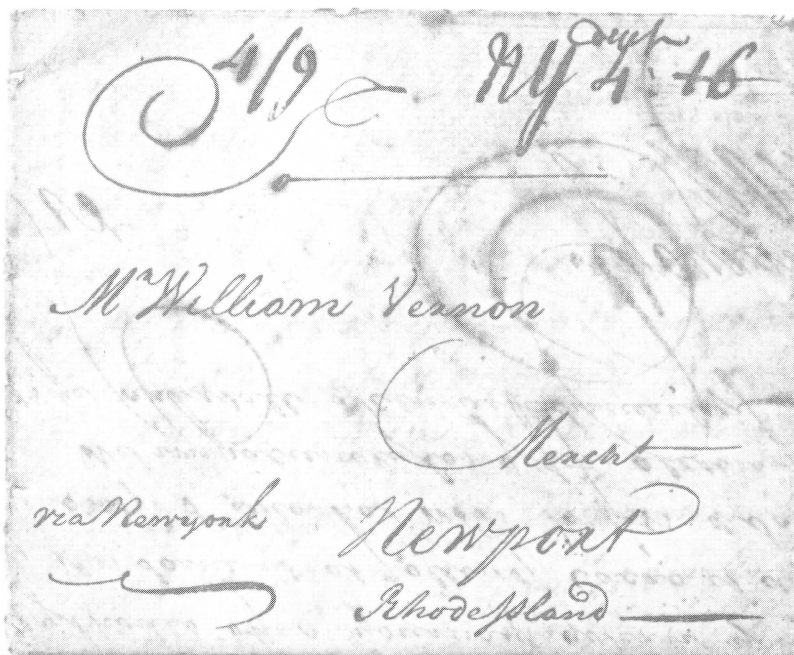 4/9 NY 4: 16
Mr William Vernon
Mercht
via Newyork
Newport
RhodeIsland